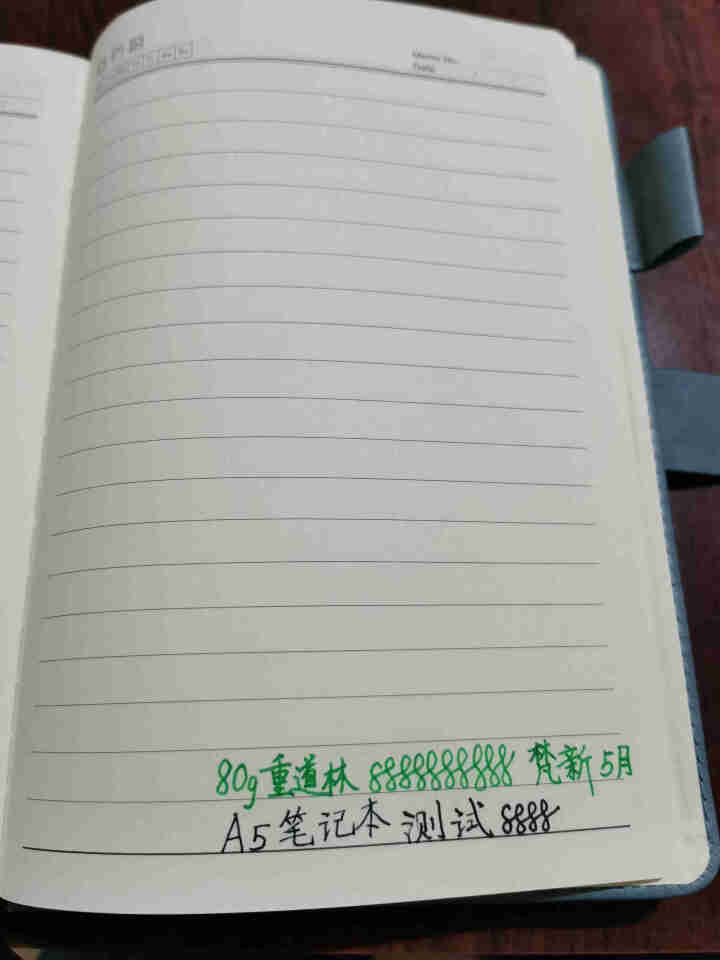 Memo No.
Date
80g重道林 8888888888 梵新 5月
A5笔记本 测试 8888